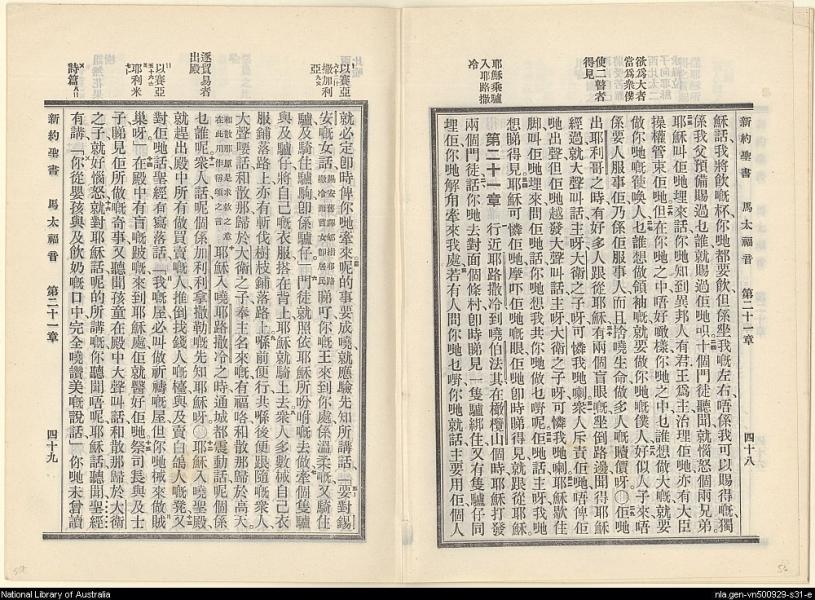 新約聖書 馬太福音 第二十一章 四十八
欲爲大者
當爲衆僕
使二瞽者
得見
耶穌乘驢
入耶路撒
冷
穌話我將飲嘅杯你哋都要飲但係坐我嘅左右唔係我可以賜得嘅獨
係我父預備賜過乜誰就賜過佢哋呮十個門徒聽聞就惱怒個兩兄弟
耶穌叫佢哋埋來話你哋知到異邦人有君王爲主治理佢哋亦有大臣
操權管束佢哋但在你哋之中唔好噉樣你哋之中乜誰想做大嘅就要
做你哋嘅使喚人乜誰想做領袖嘅就要做你哋嘅僕人好似人子來唔
係要人服事佢乃係佢服事人而且捨嘵生命做多人嘅贖價呀○佢哋
出耶利哥之時有好多人跟從耶穌有兩個盲眼嘅坐倒路邊聞得耶穌
經過就大聲叫話主呀大衛之子呀可憐我哋喇衆人斥責佢哋唔俾佢
哋出聲但佢哋越發大聲叫話主呀大衛之子呀可憐我哋喇耶穌歇住
脚叫佢哋埋來問佢哋話你哋想我共你哋做乜嘢呢佢哋話主呀我哋
想睇得見耶穌可憐佢哋摩吓佢哋嘅眼佢哋卽時睇得見就跟從耶穌
第二十一章 行近耶路撒冷到嘵伯法其在橄欖山個時耶穌打發
兩個門徒話你哋去對面個條村卽時睇見一隻驢綁住又有隻驢仔同
埋佢你哋解甩牽來我處若有人問你哋乜嘢你哋就話主要用佢個人
以賽亞
撒加利
亞
逐貿易者
出殿
以賽亞
耶利米
詩篇
就必定卽時俾你哋牽來呢的事要成嘵就應驗先知所講話「要對錫
安嘅女話睇吓你嘅王來到你處係溫柔嘅又騎住
驢及騎住驢駒卽係驢仔」門徒就照依耶穌所吩咐嘅去做牽個隻驢
與及驢仔將自己嘅衣服搭在背上耶穌就騎上去衆人多數攤自己衣
服鋪落路上亦有斬伐樹枝鋪落路上喺前便行共喺後便跟隨嘅衆人
大聲喊話和散那歸於大衛之子奉主名來嘅有福咯和散那歸於高天
耶穌入嘵耶路撒冷之時通城都震動話呢個係
乜誰呢衆人話呢個係加利利拿撒勒嘅先知耶穌呀○耶穌入嘵聖殿
就趕出殿中所有做買賣嘅人推倒找錢人嘅檯與及賣白鴿人嘅凳又
對佢哋話聖經有寫落話「我嘅屋必叫做祈禱嘅屋但你哋𢬿來做賊
巢呀」在殿中有盲嘅跛嘅來到耶穌處佢就醫好佢哋祭司長與及士
子睇見佢所做嘅奇事又聽聞孩童在殿中大聲叫話和散那歸於大衛
之子就好惱怒就對耶穌話呢的所講嘅你聽聞唔呢耶穌話聽聞聖經
有講「你從嬰孩與及飲奶嘅口中完全嘵讚美嘅說話」你哋未曾讀
新約聖書 馬太福音 第二十一章 四十九
National Library of Australia
nla.gen-vn500929-s31-e